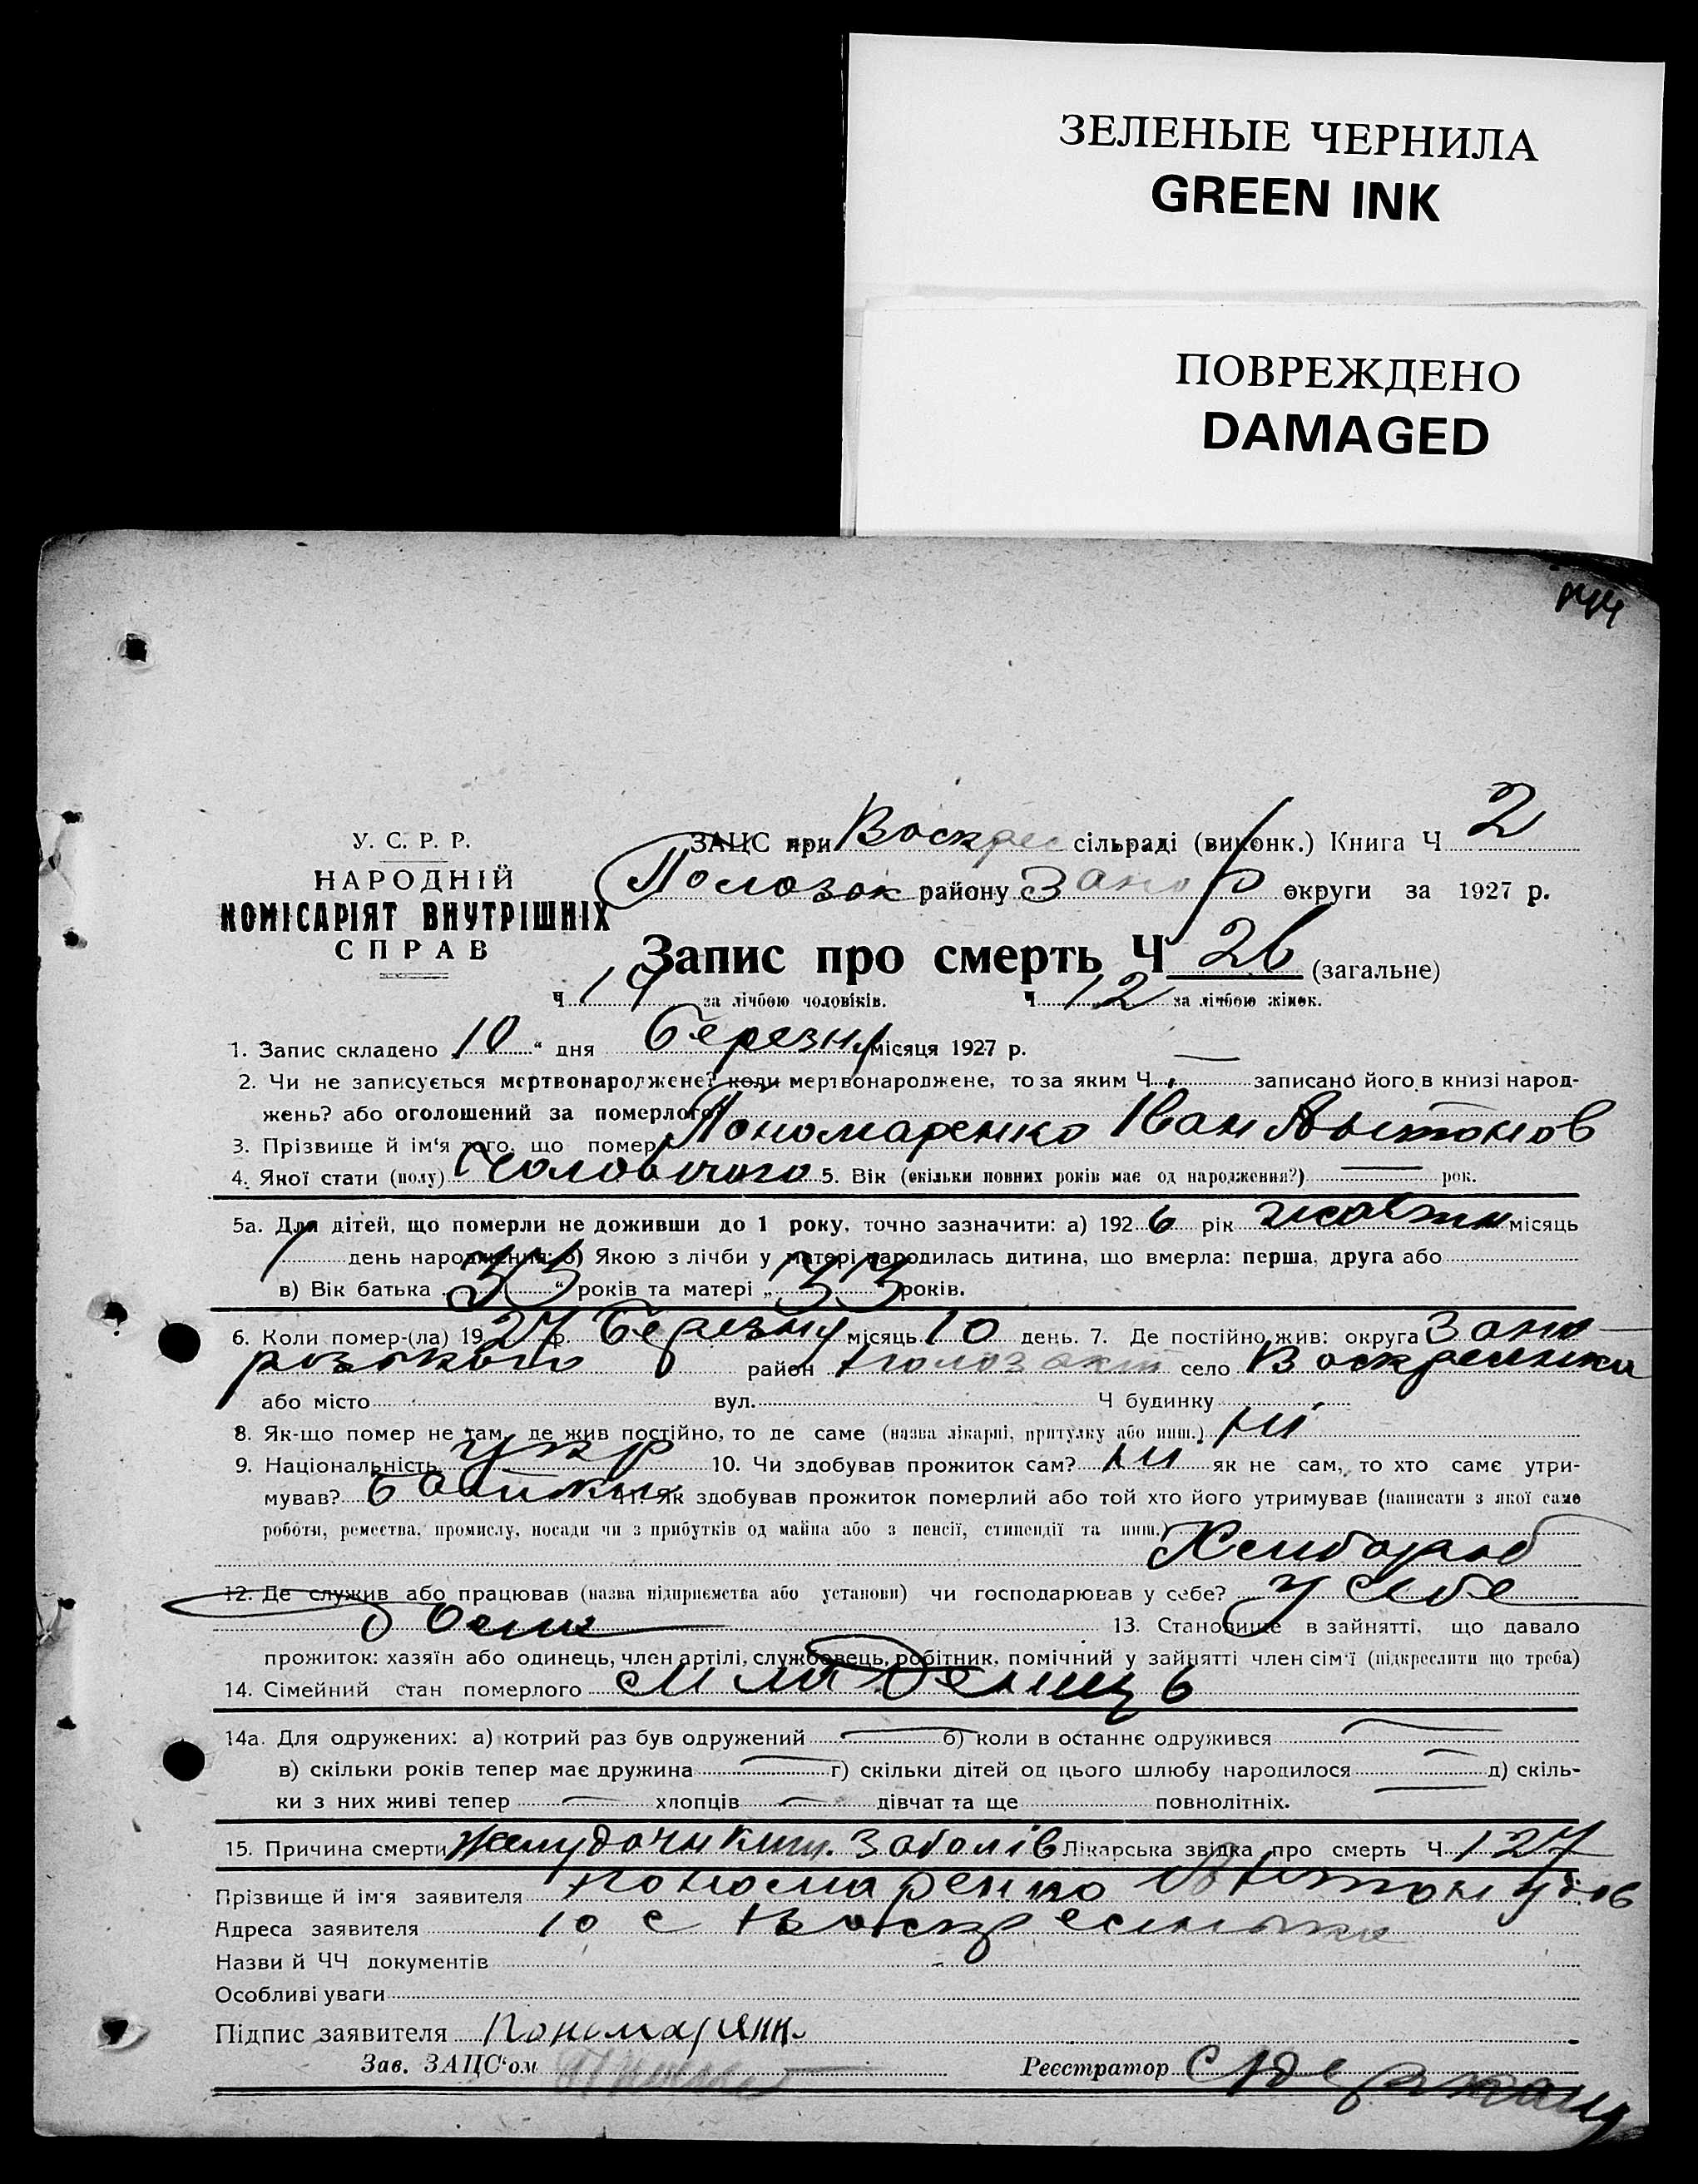 ЗЕЛЕНЫЕ ЧЕРНИЛА
GREEN INK
ПОВРЕЖДЕНО
DAMAGED
У. С. Р. Р.
НАРОДНІЙ
КОМІСАРІЯТ ВНУТРІШНІХ
СПРАВ
ЗАЦС при Воскрес сільраді (виконк.) Книга Ч 2
Полозок району Запор округи за 1927 р.
Запис про смерть Ч 26 (загальне)
Ч 14 за лічбою чоловіків. Ч 12 за лічбою жінок.
1. Запис складено „10“ дня березня місяця 1927 р.
2. Чи не записується мертвонароджене? коли мертвонароджене, то за яким Ч — записано його в книзі народ-
жень? або оголошений за померлого?
3. Прізвище й ім'я того, що помер Пономаренко Іван
4. Якої стати (полу) Чоловічого 5. Вік (скільки повних років має од народження?) — рок.
5а. Для дітей, що померли не доживши до 1 року, точно зазначити: а) 1926 рік жовтня місяць
1 день народження; б) Якою з лічби у матері народилась дитина, що вмерла: перша, друга або
в) Вік батька „33“ років та матері „33“ років.
6. Коли помер-(ла) 1927 р. березня місяць 10 день. 7. Де постійно жив: округа Запо-
різького район Полозький село Воскресенка
або місто вул. Ч будинку
8. Як-що помер не там, де жив постійно, то де саме (назва лікарні, притулку або инш.) ні
9. Національність укр 10. Чи здобував прожиток сам? ни як не сам, то хто саме утри-
мував? батьки 11. Як здобував прожиток померлий або той хто його утримував (написати з якої саме
роботи, ремества, промислу, посади чи з прибутків од майна або з пенсії, стипендії та инш.) Хлибороб
12. Де служив або працював (назва підприємства або установи) чи господарював у себе? у себе
дома 13. Становище в зайнятті, що давало
прожиток: хазяїн або одинець, член артілі, службовець, робітник, помічний у зайнятті член сім'ї (підкреслити що треба)
14. Сімейний стан померлого младенець
14а. Для одружених: а) котрий раз був одружений — б) коли в останнє одружився —
в) скільки років тепер має дружина — г) скільки дітей од цього шлюбу народилося — д) скіль-
ки з них живі тепер — хлопців — дівчат та ще — повнолітніх.
15. Причина смерти Желудочн Киш. Заболів Лікарська звідка про смерть Ч 127
Прізвище й ім'я заявителя Пономаренко
Адреса заявителя с Воскресенька
Назви й ЧЧ документів
Особливі уваги
Підпис заявителя
Зав. ЗАЦС‘ом Реєстратор